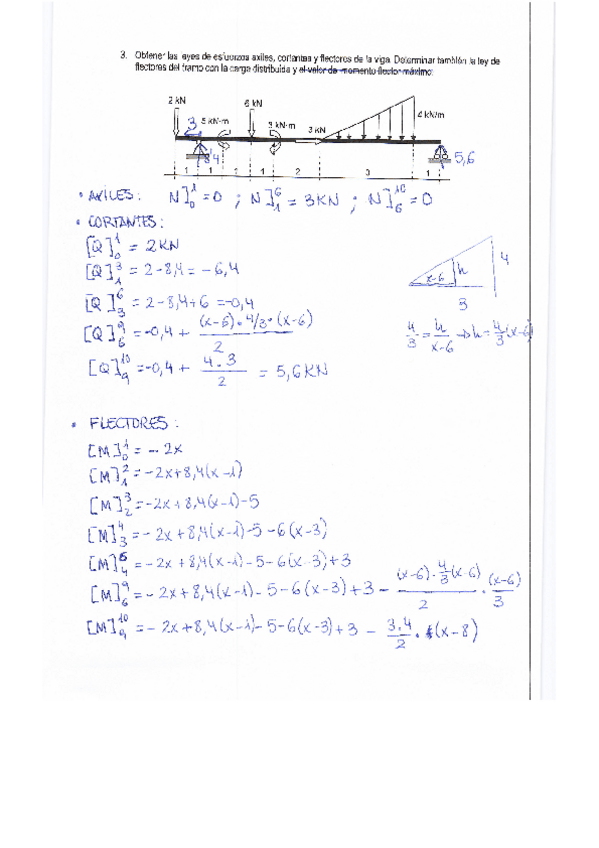 3. Obtener las leyes de esfuerzos axiles, cortantes y flectores de la viga. Determinar también la ley de
flectores del tramo con la carga distribuida y el valor de momento flector máximo:
2 kN
6 kN
3
5 kN·m
3 kN·m
3 kN
4 kN/m
8,4
5,6
1 1 1 1 2 3 1
• AXILES: N]₀¹ = 0 ; N]₁⁶ = 3KN ; N]₆¹⁰ = 0
• CORTANTES:
[Q]₀¹ = 2KN
[Q]₁³ = 2-8,4 = -6,4
[Q]₃⁶ = 2-8,4+6 = -0,4
[Q]₆⁹ = -0,4 + (x-6)·4/3·(x-6) / 2
[Q]₉¹⁰ = -0,4 + 4·3 / 2 = 5,6KN
x-6 h 4
3
4/3 = h/x-6 → h = 4/3·(x-6)
• FLECTORES:
[M]₀¹ = -2x
[M]₁² = -2x+8,4(x-1)
[M]₂³ = -2x+8,4(x-1)-5
[M]₃⁴ = -2x+8,4(x-1)-5-6(x-3)
[M]₄⁶ = -2x+8,4(x-1)-5-6(x-3)+3
[M]₆⁹ = -2x+8,4(x-1)-5-6(x-3)+3 - (x-6)·4/3(x-6) / 2 · (x-6) / 3
[M]₉¹⁰ = -2x+8,4(x-1)-5-6(x-3)+3 - 3·4 / 2 · (x-8)